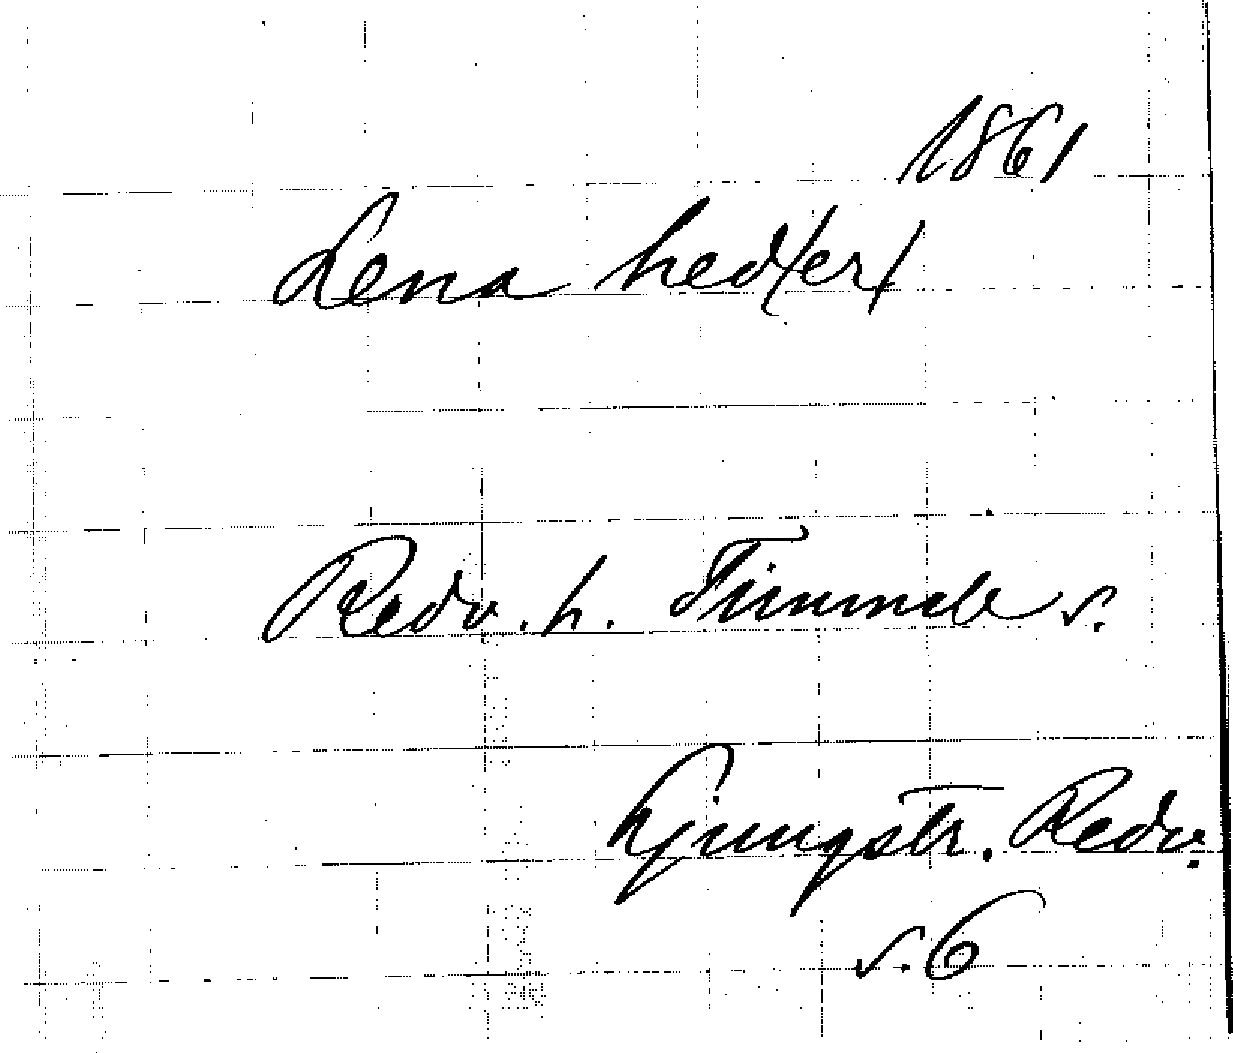 1861
Lena hedtert
Redv. h. Timmele s.
Ljungstr. Redv.
s. 6